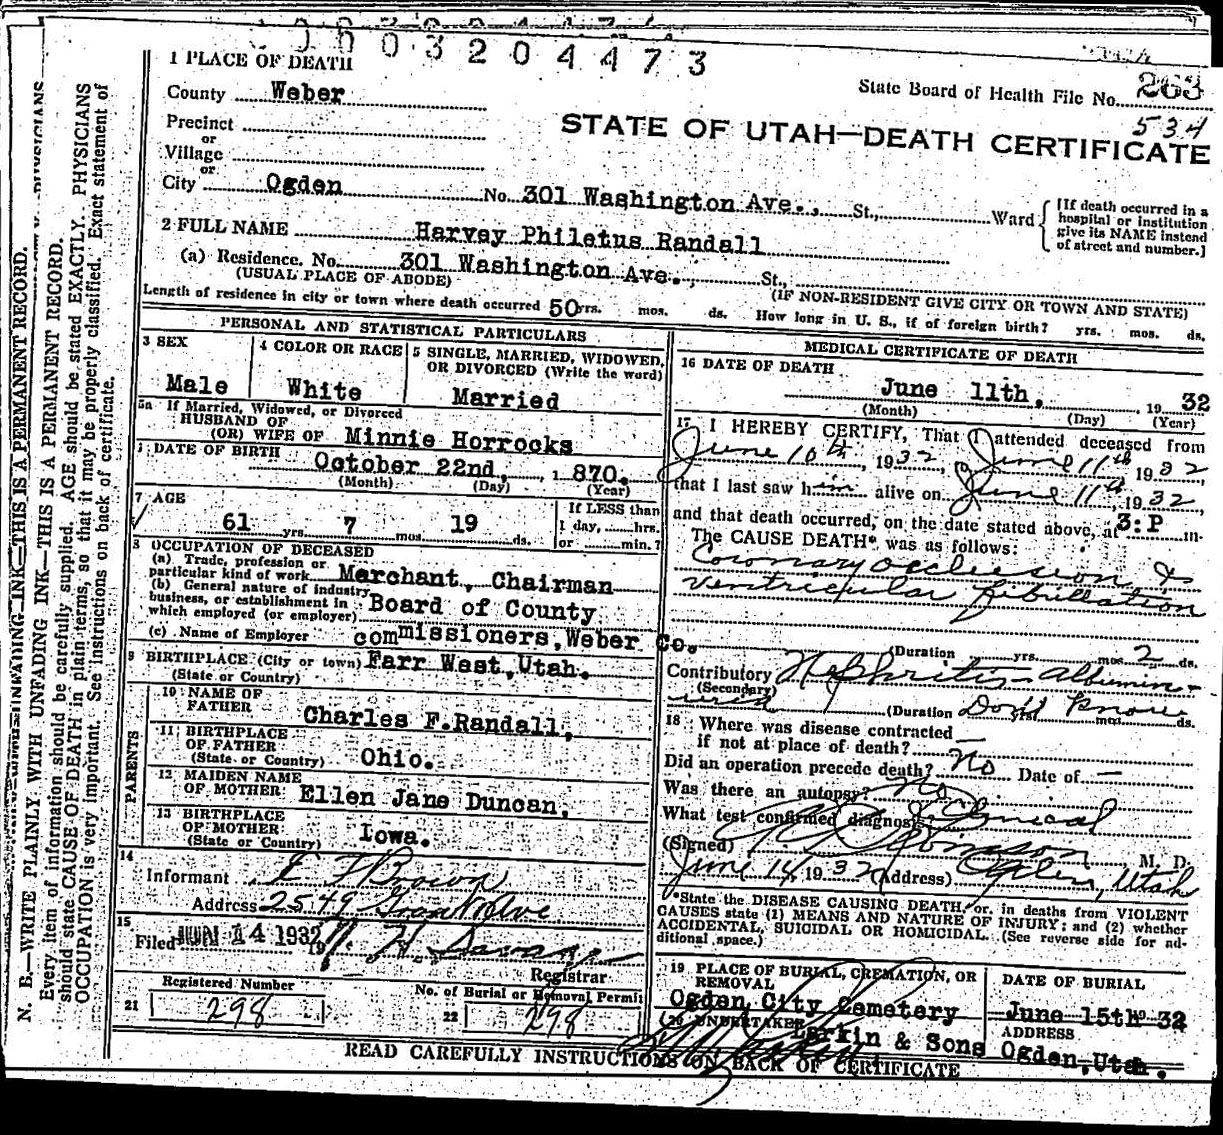 0003204473
1 PLACE OF DEATH
State Board of Health File No. 263
534
County Weber
STATE OF UTAH—DEATH CERTIFICATE
Precinct
or
Village
or
City Ogden No. 301 Washington Ave., St., Ward
[If death occurred in a hospital or institution give its NAME instead of street and number.]
2 FULL NAME Harvey Philetus Randall
(a) Residence. No. 301 Washington Ave., St.,
(USUAL PLACE OF ABODE) (IF NON-RESIDENT GIVE CITY OR TOWN AND STATE)
Length of residence in city or town where death occurred 50 yrs. mos. ds. How long in U. S., if of foreign birth? yrs. mos. ds.
PERSONAL AND STATISTICAL PARTICULARS
3 SEX
Male
4 COLOR OR RACE
White
5 SINGLE, MARRIED, WIDOWED, OR DIVORCED (Write the word)
Married
5a If Married, Widowed, or Divorced
HUSBAND OF
(OR) WIFE OF Minnie Horrocks
DATE OF BIRTH October 22nd, 1870.
(Month) (Day) (Year)
7 AGE
61 yrs. 7 mos. 19 ds.
If LESS than
1 day, hrs.
or min.?
8 OCCUPATION OF DECEASED
(a) Trade, profession or
particular kind of work Merchant, Chairman
(b) General nature of industry,
business, or establishment in
which employed (or employer) Board of County
(c) Name of Employer commissioners, Weber Co.
9 BIRTHPLACE (City or town) Farr West, Utah.
(State or Country)
PARENTS
10 NAME OF
FATHER Charles F. Randall,
11 BIRTHPLACE
OF FATHER
(State or Country) Ohio.
12 MAIDEN NAME
OF MOTHER Ellen Jane Duncan,
13 BIRTHPLACE
OF MOTHER
(State or Country) Iowa.
14
Informant E F Brown
Address 2549 Grant Ave
15
Filed JUN 14 1932 19
Registrar
Registered Number
21 298
No. of Burial or Removal Permit
22 298
MEDICAL CERTIFICATE OF DEATH
16 DATE OF DEATH
June 11th, 1932
(Month) (Day) (Year)
17 I HEREBY CERTIFY, That I attended deceased from
June 10th, 1932, to June 11th 1932
that I last saw him alive on June 11th, 1932,
and that death occurred, on the date stated above, at 3:P m.
The CAUSE DEATH* was as follows:
Coronary occlusion &
ventricular fibrillation
(Duration yrs. mos. 2 ds.
Contributory Nephritis Albumin-
(Secondary) urea
(Duration Don't know yrs. mos. ds.
18 Where was disease contracted
if not at place of death? —
Did an operation precede death? No Date of —
Was there an autopsy? No
What test confirmed diagnosis? Clinical
(Signed) M. D.
June 14, 1932 (Address) Ogden, Utah
*State the DISEASE CAUSING DEATH, or, in deaths from VIOLENT
CAUSES state (1) MEANS AND NATURE OF INJURY; and (2) whether
ACCIDENTAL, SUICIDAL OR HOMICIDAL. (See reverse side for ad-
ditional space.)
19 PLACE OF BURIAL, CREMATION, OR
REMOVAL
Ogden City Cemetery
DATE OF BURIAL
June 15th 1932
20 UNDERTAKER
Larkin & Sons
ADDRESS
Ogden, Utah.
READ CAREFULLY INSTRUCTIONS ON BACK OF CERTIFICATE
N. B.—WRITE PLAINLY WITH UNFADING INK—THIS IS A PERMANENT RECORD.
Every item of information should be carefully supplied. AGE should be stated EXACTLY. PHYSICIANS
should state CAUSE OF DEATH in plain terms, so that it may be properly classified. Exact statement of
OCCUPATION is very important. See instructions on back of certificate.